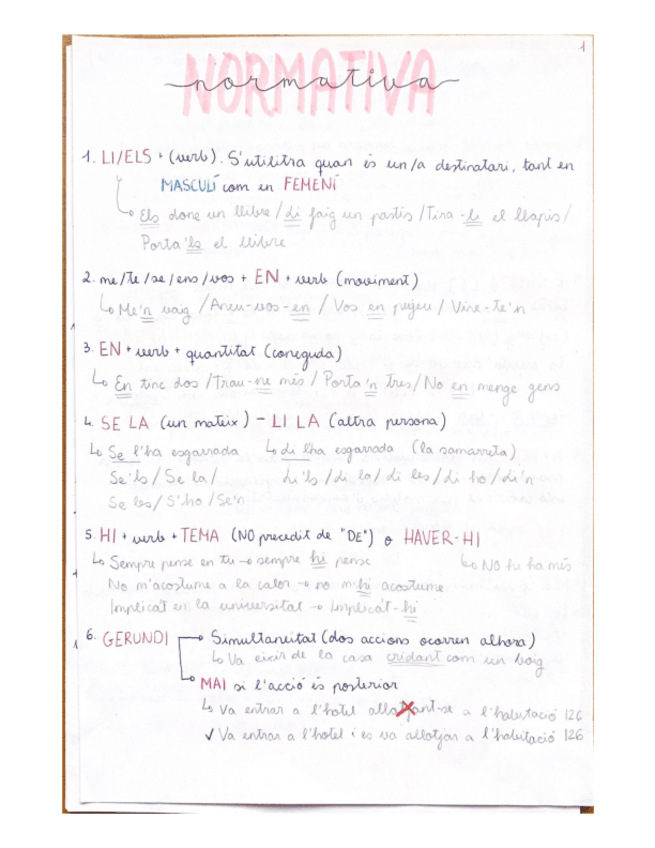 1
NORMATIVA
normativa
1. LI/ELS + (verb). S'utilitza quan és un/a destinatari, tant en
MASCULÍ com en FEMENÍ
Els done un llibre / Li faig un pastís / Tira-li el llapis /
Porta'ls el llibre
2. me/te/se/ens/vos + EN + verb (moviment)
Me'n vaig / Aneu-vos-en / Vos en pugeu / Vine-te'n
3. EN + verb + quantitat (coneguda)
En tinc dos / Trau-ne més / Porta'n tres / No en menge gens
4. SE LA (un mateix) - LI LA (altra persona)
Se l'ha esgarrada Li l'ha esgarrada (la samarreta)
Se'ls / Se la / Li'ls / Li la / Li les / Li ho / Li'n
Se les / S'ho / Se'n
5. HI + verb + TEMA (NO precedit de "DE") o HAVER-HI
Sempre pense en tu → sempre hi pense NO hi ha més
No m'acostume a la calor → no m'hi acostume
Implica't en la universitat → Implica't-hi
6. GERUNDI → Simultaneïtat (dos accions ocorren alhora)
Va eixir de la casa cridant com un boig
MAI si l'acció és posterior
Va entrar a l'hotel allotjant-se a l'habitació 126
✓ Va entrar a l'hotel i es va allotjar a l'habitació 126